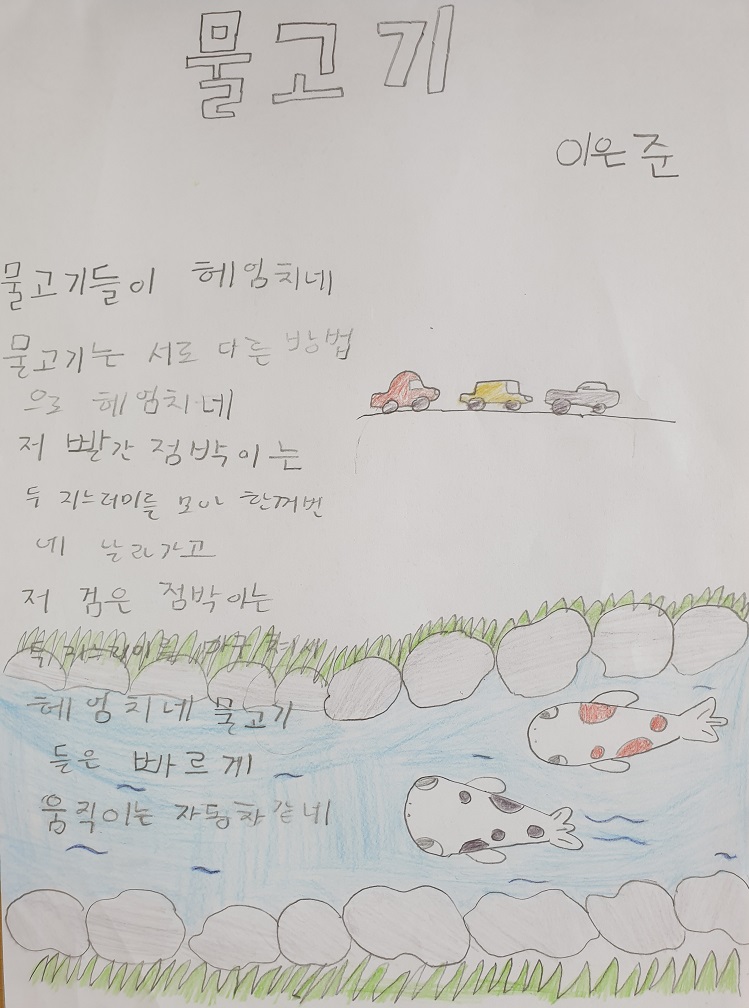 물고기
이은준
물고기들이 헤엄치네
물고기는 서로 다른 방법
으로 헤엄치네
저 빨간 점박이는
두 지느러미를 모아 한꺼번
네 날라가고
저 검은 점박이는
두 지느러미를 마구 저어
헤엄치네 물고기
들은 빠르게
움직이는 자동차같네